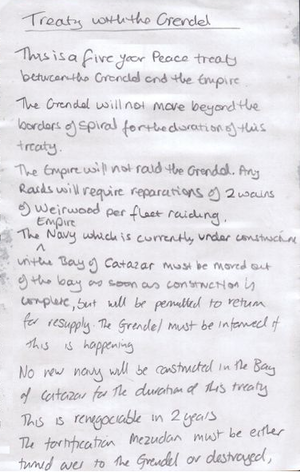 Treaty with the Grendel
This is a five year Peace treaty
between the Grendel and the Empire
The Grendel will not move beyond the
borders of Spiral for the duration of this
treaty.
The Empire will not raid the Grendel. Any
Raids will require reparations of 2 wains
of Weirwood per fleet raiding.
Empire
The Navy which is currently under construction
in the Bay of Catazar must be moved out
of the bay as soon as construction is
complete, but will be permitted to return
for resupply. The Grendel must be informed if
this is happening
No new navy will be constructed in the Bay
of Catazar for the duration of this treaty
This is renegociable in 2 years
The fortification Mezudan must be either
turned over to the Grendel or destroyed,